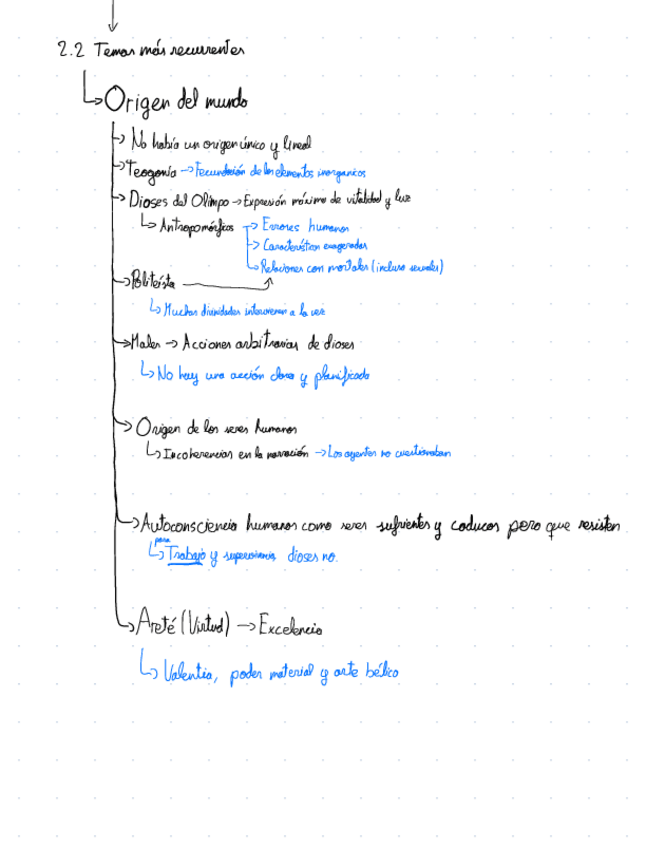 2.2 Temas más recurrentes
↳ Origen del mundo
→ No había un origen único y lineal
→ Teogonía → Fecundación de los elementos inorganicos
→ Dioses del Olimpo → Expresión máxima de vitalidad y luz
↳ Antropomórficos → Errores humanos
→ Características exageradas
↳ Relaciones con mortales (incluso sexuales)
→ Politeísta
↳ Muchas divinidades intervienen a la vez
→ Males → Acciones arbitrarias de dioses
↳ No hay una acción clara y planificada
→ Origen de los seres humanos
↳ Incoherencias en la narración → Los oyentes no cuestionaban
→ Autoconsciencia humanos como seres sufrientes y caducos pero que resisten
para
↳ Trabajo y supervivencia dioses no.
↳ Areté (Virtud) → Excelencia
↳ Valentia, poder material y arte bélico